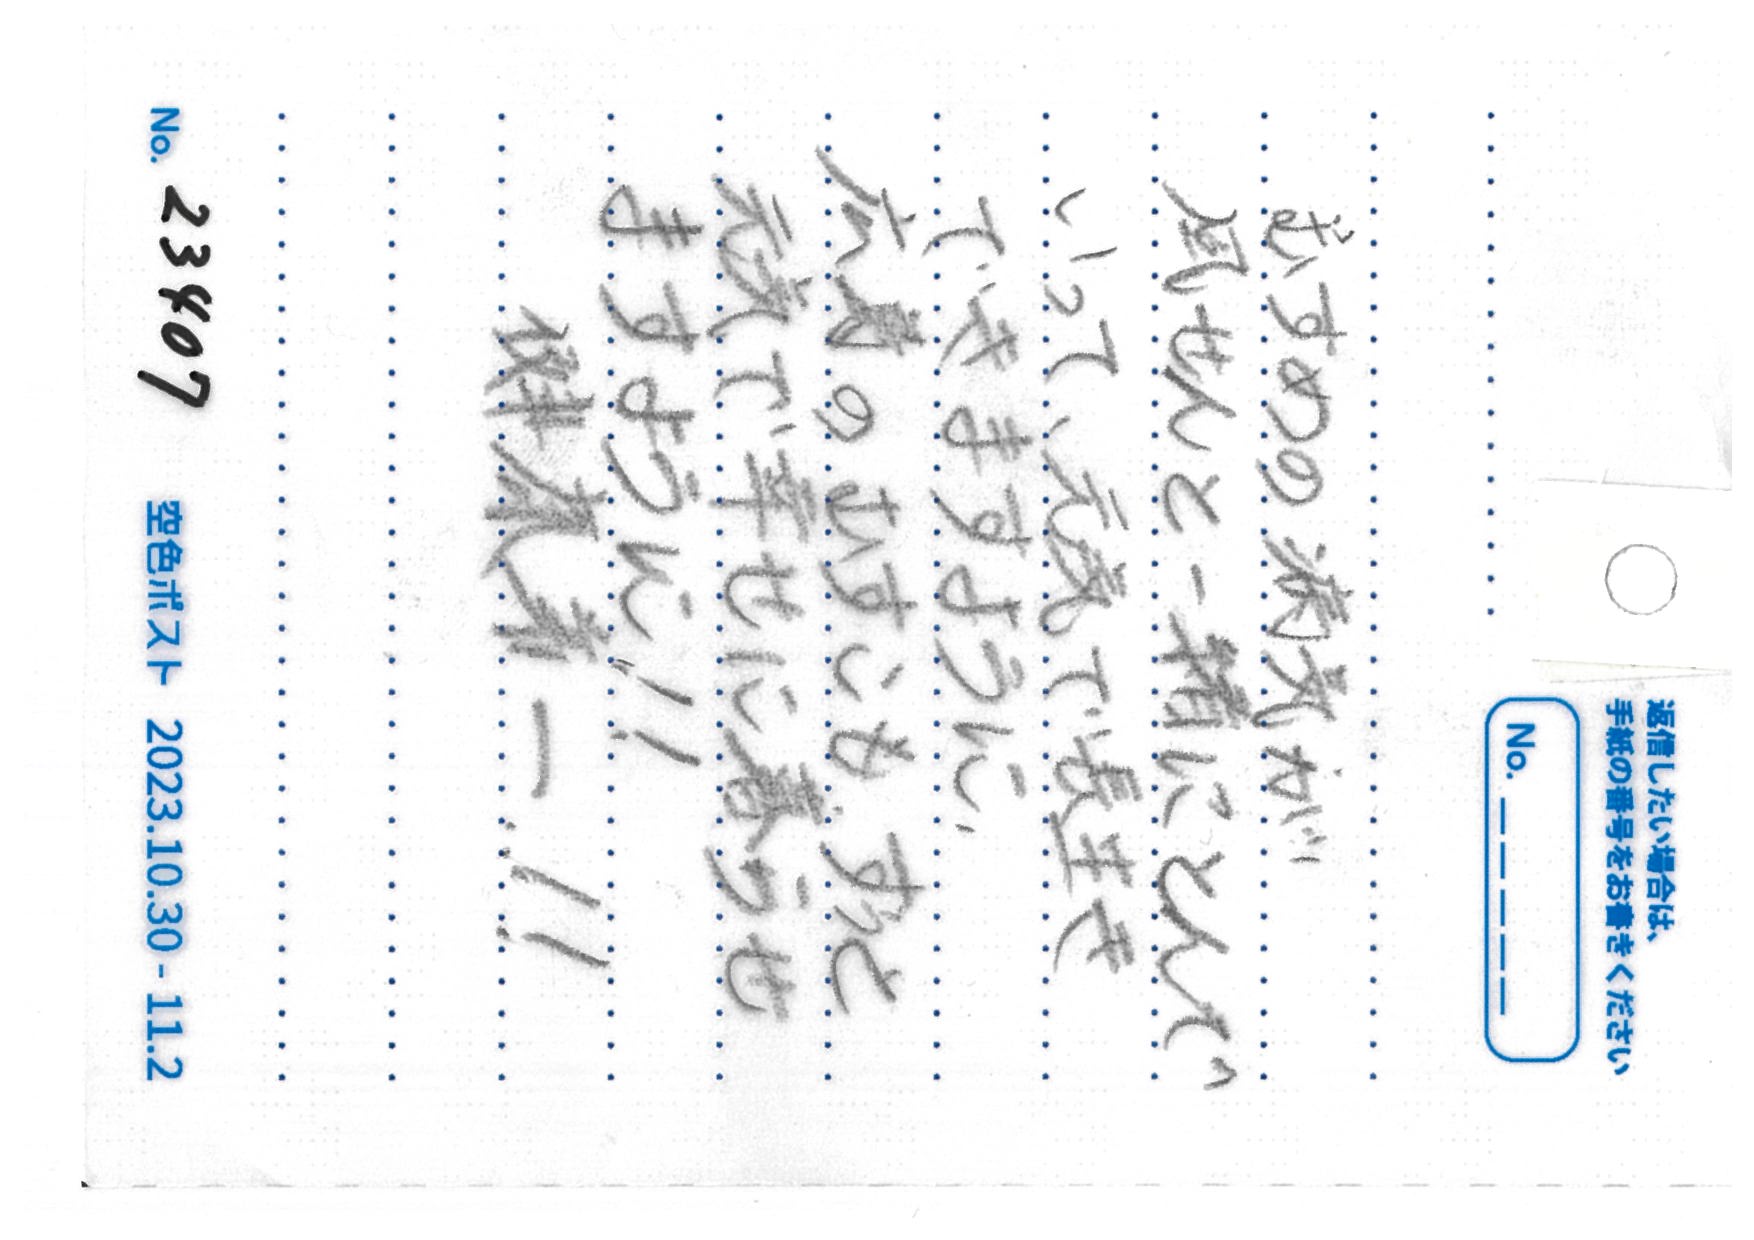 返信したい場合は、
手紙の番号をお書きください
No. _ _ _ _ _
むすめの病気が
風せんと一緒にとんで
いって、元気で長生き
できますように、
広島のむすこも、ずっと
元気で幸せに暮らせ
ますように!!
健康第一!!
No. 23407
空色ポスト 2023.10.30 - 11.2